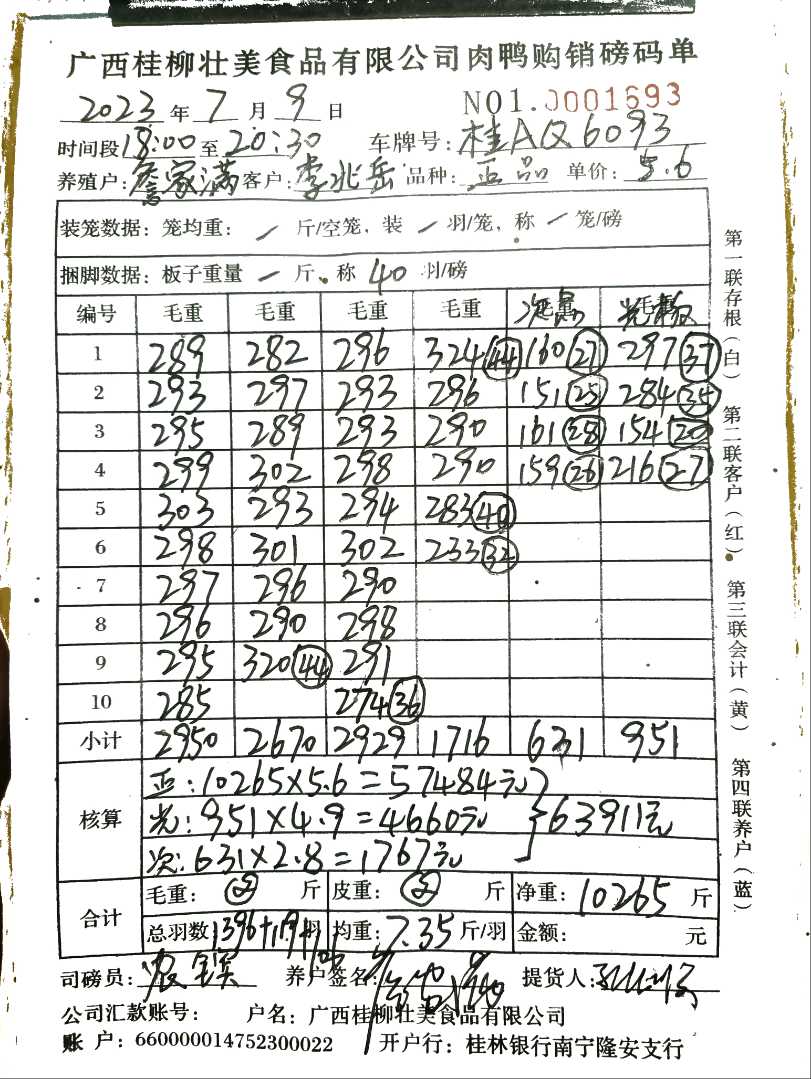 广西桂柳壮美食品有限公司肉鸭购销磅码单
2023 年 7 月 9 日 NO1.0001693
时间段 18:00 至 20:30 车牌号: 桂AQ6093
养殖户: 詹家满 客户: 李兆岳 品种: 正品 单价: 5.6
装笼数据: 笼均重: / 斤/空笼, 装 / 羽/笼, 称 / 笼/磅
捆脚数据: 板子重量 / 斤, 称 40 羽/磅
编号 毛重 毛重 毛重 毛重 次品 毛重
1 289 282 296 324 (44) 160 (27) 297 (37)
2 293 297 293 296 151 (25) 284 (35)
3 295 289 293 290 161 (28) 154 (20)
4 299 302 298 290 159 (26) 216 (27)
5 303 293 294 283 (40)
6 298 301 302 233 (32)
7 297 296 290
8 296 290 298
9 295 320 (44) 291
10 285 274 (36)
小计 2950 2670 2929 1716 631 951
核算
正: 10265×5.6=57484元
光: 951×4.9=4660元 } 63911元
次: 631×2.8=1767元
合计
毛重: 斤 皮重: 斤 净重: 10265 斤
总羽数 1396+119+106 羽 均重: 7.35 斤/羽 金额: 元
司磅员: 养户签名: 提货人:
公司汇款账号: 户名: 广西桂柳壮美食品有限公司
账 户: 660000014752300022 开户行: 桂林银行南宁隆安支行
第一联存根(白) 第二联客户(红) 第三联会计(黄) 第四联养户(蓝)